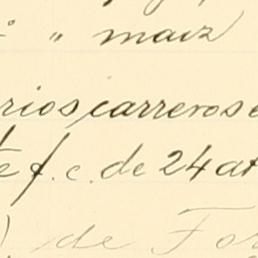 " maiz
rios carreros e
te f. c. de 24 at
) de For